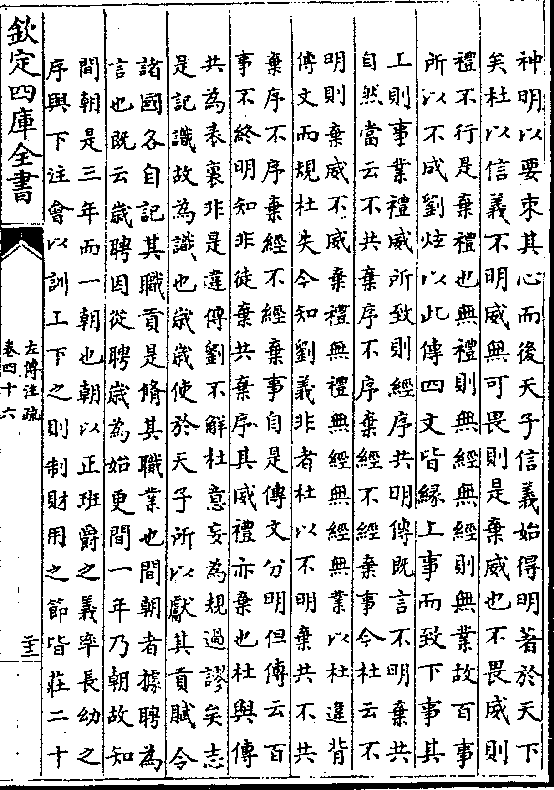 神明以要束其心而後天子信義始得明著於天下
矣杜以信義不明威無可畏則是棄威也不畏威則
禮不行是棄禮也無禮則無經無經則無業故百事
所以不成劉炫以此傳四文皆緣上事而致下事其
工則事業禮威所致則經序共明傳既言不明棄共
自然當云不共棄序不序棄經不經棄事今杜云不
明則棄威不威棄禮無禮無經無經無業以杜違背
傳文而規杜失今知劉義非者杜以不明棄共不共
棄序不序棄經不經棄事自是傳文分明但傳云百
事不終明知非徒棄共棄序其威禮亦棄也杜與傳
共為表裏非是違傳劉不解杜意妄為規過謬矣志
是記識故為識也歲歲使於天子所以獻其貢賦令
諸國各自記其職貢是脩其職業也間朝者據聘為
言也既云歲聘因從聘歲為始更間一年乃朝故知
間朝是三年而一朝也朝以正班爵之義率長幼之
序與下注會以訓上下之則制財用之節皆莊二十
欽定四庫全書
左傳注疏
卷四十六
二十三